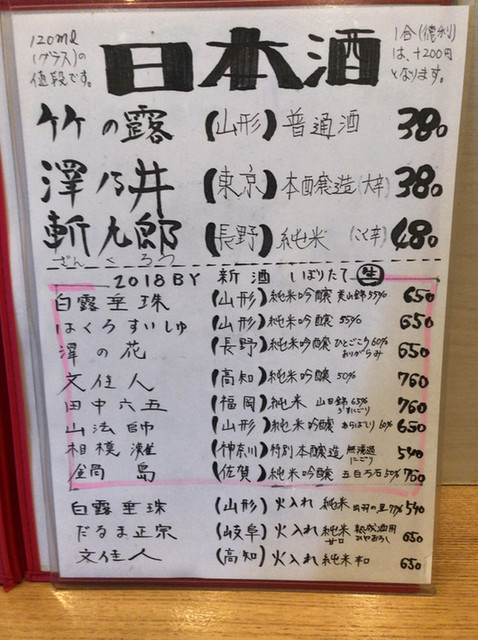 120ml
(グラス)の
値段です。
日本酒
1合(徳利)
は、+200円
となります。
竹の露 (山形) 普通酒 380
澤乃井 (東京) 本醸造(大辛) 380
斬九郎 (長野) 純米 (こく辛) 480
ざんくろう
2018BY 新酒 しぼりたて 生
白露垂珠 (山形) 純米吟醸 美山錦55% 650
はくろすいしゅ (山形) 純米吟醸 55% 650
澤の花 (長野) 純米吟醸 ひとごこち60% 650
文佳人 (高知) 純米吟醸 50% 760
田中六五 (福岡) 純米 山田錦65% うすにごり 760
山法師 (山形) 純米吟醸 あらばしり 60% 650
相模灘 (神奈川) 特別本醸造 無濾過 にごり 540
鍋島 (佐賀) 純米吟醸 五百万石50% 760
白露垂珠 (山形) 火入れ 純米 出羽の里77% 540
だるま正宗 (岐阜) 火入れ 純米 甘口 650
文佳人 (高知) 火入れ 純米 和 650